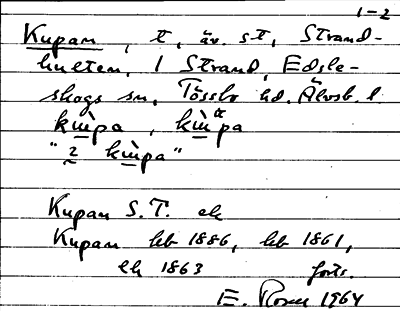 1-2
Kupan, t, äv. s.t, Strand-
hulten, 1 Strand, Edsle-
skogs sn, Tössbo hd. Älvsb. l.
kɯ̀pa, kɯ̀pa
"2 kɯ̀pa"
Kupan S.T. ek
Kupan hb 1886, hb 1861,
ek 1863 forts.
E. Rosen 1964